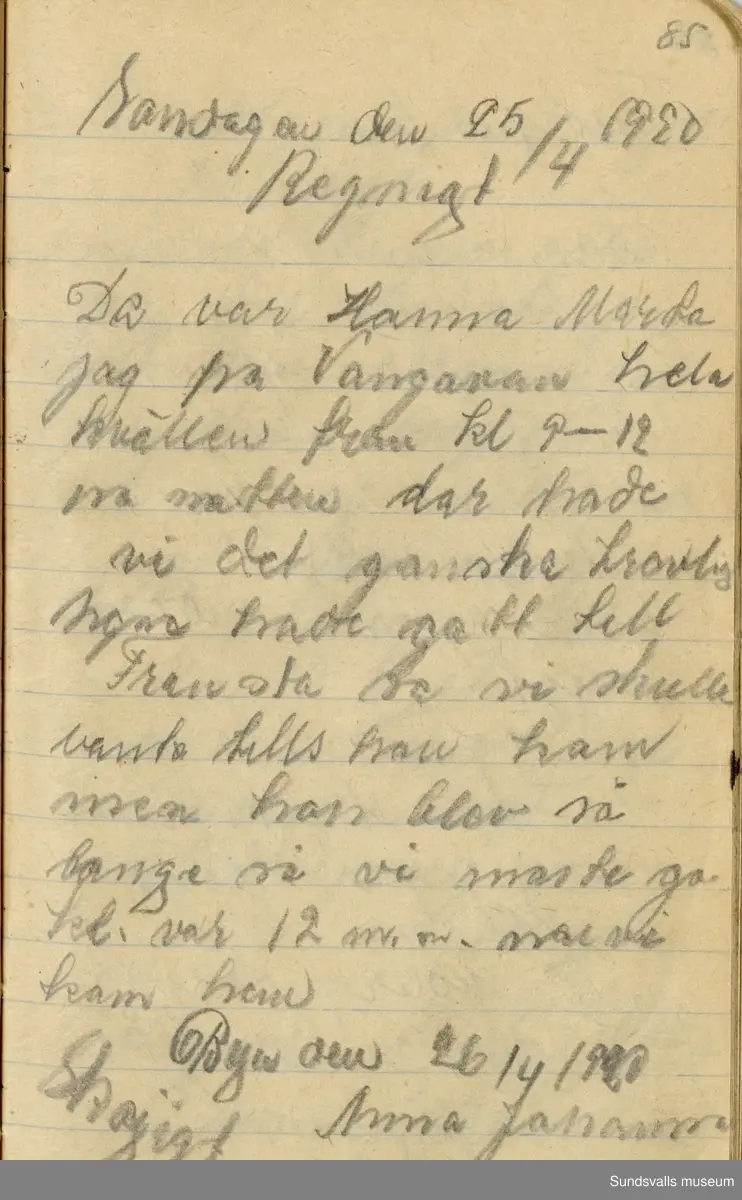 85
Sondagen den 25/4 1920
Regnigt
Då var Hanna Marta
jag på Vangavan hela
kvällen från kl 9-12
på natten dar hade
vi det ganska trovlig
hade gått till
Fransta så vi skulle
vanta tills han kam
men han blev så
lange så vi maste ga
kl. var 12 m.n. nar vi
kam hem
Byn den 26/4 1920
Skojigt Anna Johanna
Sundsvalls museum